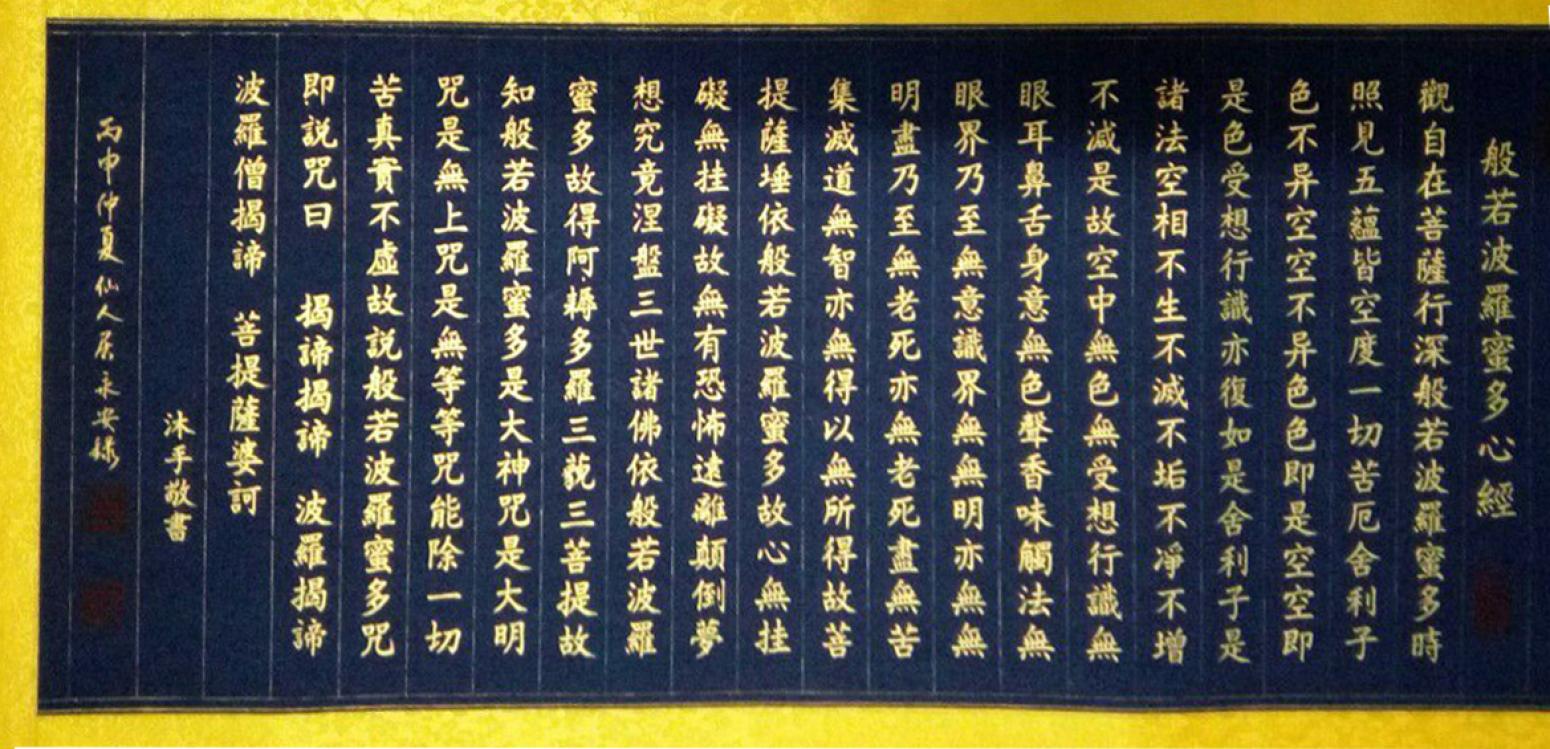 般若波羅蜜多心經
觀自在菩薩行深般若波羅蜜多時
照見五蘊皆空度一切苦厄舍利子
色不异空空不异色色即是空空即
是色受想行識亦復如是舍利子是
諸法空相不生不滅不垢不凈不增
不減是故空中無色無受想行識無
眼耳鼻舌身意無色聲香味觸法無
眼界乃至無意識界無無明亦無無
明盡乃至無老死亦無老死盡無苦
集滅道無智亦無得以無所得故菩
提薩埵依般若波羅蜜多故心無挂
礙無挂礙故無有恐怖遠離顛倒夢
想究竟涅盤三世諸佛依般若波羅
蜜多故得阿耨多羅三藐三菩提故
知般若波羅蜜多是大神咒是大明
咒是無上咒是無等等咒能除一切
苦真實不虛故説般若波羅蜜多咒
即説咒曰 揭諦揭諦 波羅揭諦
波羅僧揭諦 菩提薩婆訶
沐手敬書
丙申仲夏仙人居永安